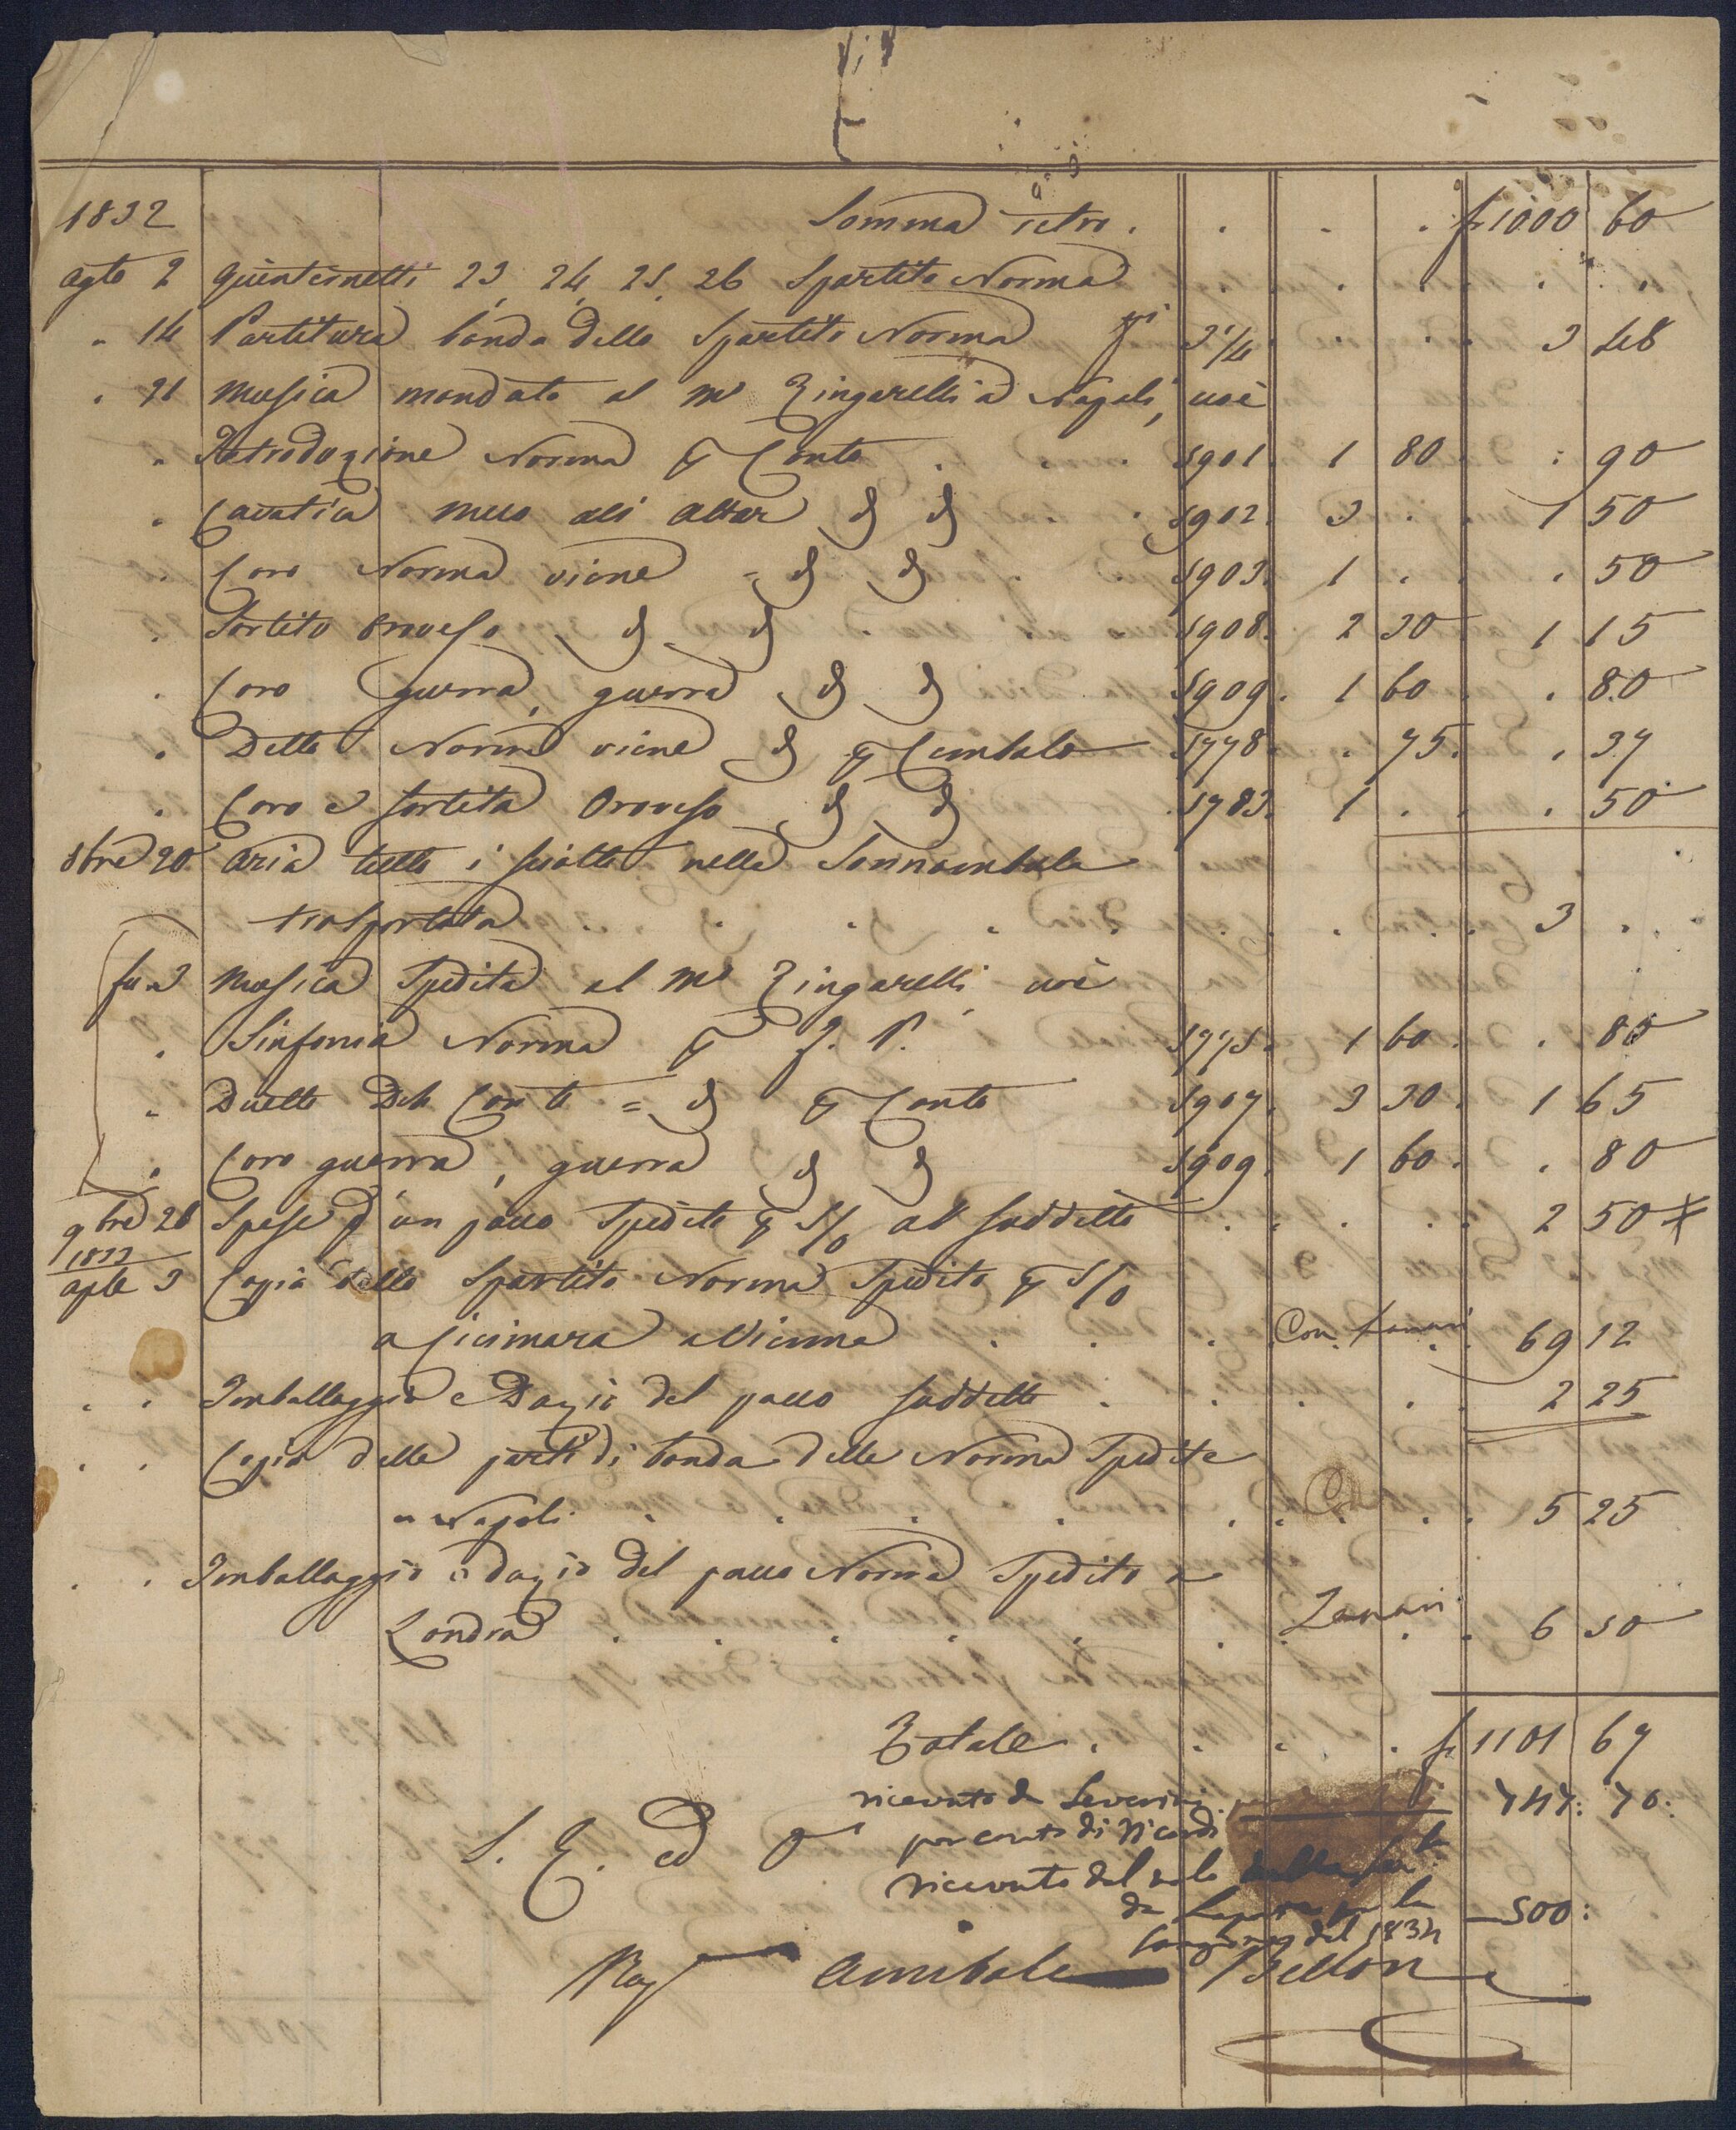 1832 Somma retro . . . . fr 1000 60
agto 2 quinternetti 23, 24, 25, 26 Spartito Norma . . . . . . .
" 14 Partitura banda dello Spartito Norma gi 3 1/4 . . . 3 48
" 21 Musica mandata al Mo Zingarelli a Napoli, cioè
" Introduzione Norma p Canto . . . 5901. 1 80 : 90
" Cavatina meco all' altar d d . . 5902. 3 . . 1 50
" Coro Norma viene = d d . . 5903. 1 . . 50
" Sortita Oroveso d d . 5908. 2 30 1 15
" Coro guerra, guerra d d 5909. 1 60 . 80
" Detto Norma viene d p Cembalo 5778 . 75. . 37
" Coro e sortita Oroveso d d 5783. 1 . . 50
8bre 20 Aria tutto è sciolto nella Sonnambula
trasportata . . . . . . . . 3 . .
Musica Spedita al Mo Zingarelli cioè
" Sinfonia Norma p J. P. 5775. 1 60. . 80
" Duetto Deh Con te = d p Canto 5907. 3 30. 1 65
" Coro guerra, guerra d d 5909. 1 60. . 80
9bre 26 Spese p un pacco Spedito p S/O al suddetto . . . . . 2 50
1833
aple 3 Copia dello Spartito Norma Spedito p S/O
a Cicimara a Vienna . . . Con Lanari 69 12
" " Imballaggio e Dazio del pacco suddetto . . . . . 2 25
" " Copia delle parti di banda della Norma Spedite
a Napoli . . . . . . . . 5 25
" " Imballaggio e dazio del pacco Norma Spedito a
Londra . . . . . . Lanari 6 50
Totale . . . . fr 1101 67
ricevuto da Severini 747: 70:
per conto di Ricordi
S. E. ed O
ricevuto dal
da la 500:
del 1834
Rag Annibale Bellon